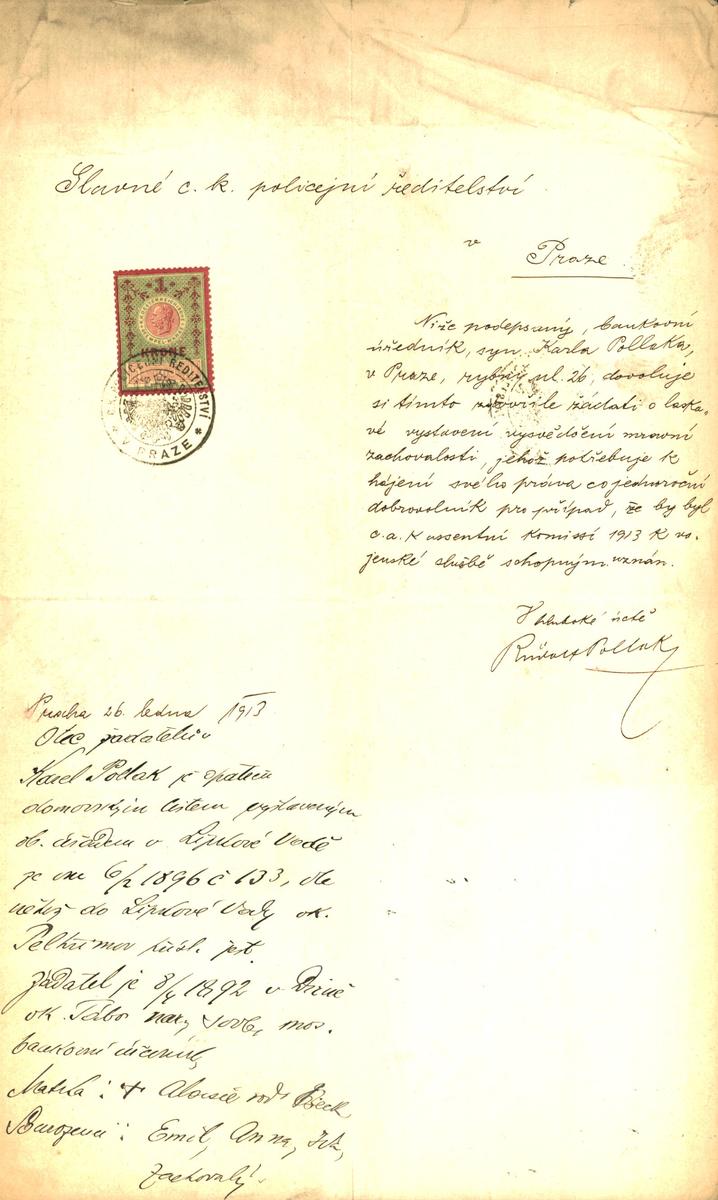 Slavné c. k. policejní ředitelství
v
Praze
1
KRONE
C.K. POLICEJNÍ ŘEDITELSTVÍ
* V PRAZE *
Níže podepsaný, bankovní
úředník, syn Karla Pollaka,
v Praze, rybný ul. 26, dovoluje
si tímto zdvořile žádati o laska-
vé vystavení vysvědčení mravní
zachovalosti, jehož potřebuje k
hájení svého práva co jednoroční
dobrovolník pro případ, že by byl
c. a. k assentní komissí 1913 k vo-
jenské službě schopným uznán.
V hluboké úctě
Rudolf Pollak
Praha 26. ledna 1913
Otec žadatelův
Karel Pollak je opatřen
domovským listem vystaveným
ob. úřadem v Lipkové Vodě
ze dne 6/2 1896 č 133, dle
něhož do Lipkové Vody ok.
Pelhřimov přísl. jest.
Žadatel je 8/4 1892 v
ok. Tábor nar, svob, mos.
bankovní úředník,
Matka: + Aloisie roz.
Sourozenci: Emil, Anna,
Zachovalý.